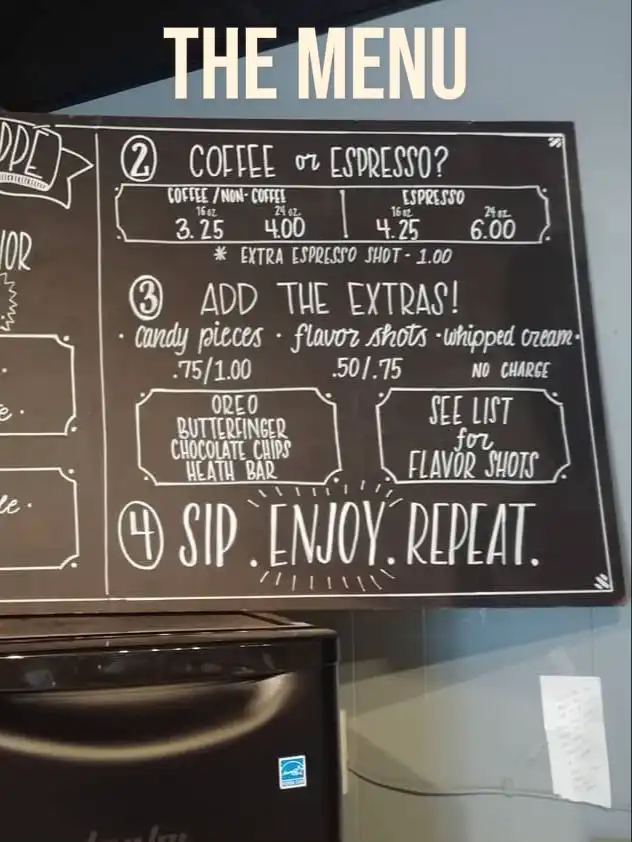 THE MENU
② COFFEE or ESPRESSO?
COFFEE / NON-COFFEE
16 oz. 24 oz.
3.25 4.00
ESPRESSO
16 oz. 24 oz.
4.25 6.00
* EXTRA ESPRESSO SHOT - 1.00
③ ADD THE EXTRAS!
· candy pieces · flavor shots · whipped cream ·
.75/1.00 .50/.75 NO CHARGE
OREO
BUTTERFINGER
CHOCOLATE CHIPS
HEATH BAR
SEE LIST
for
FLAVOR SHOTS
④ SIP . ENJOY . REPEAT.